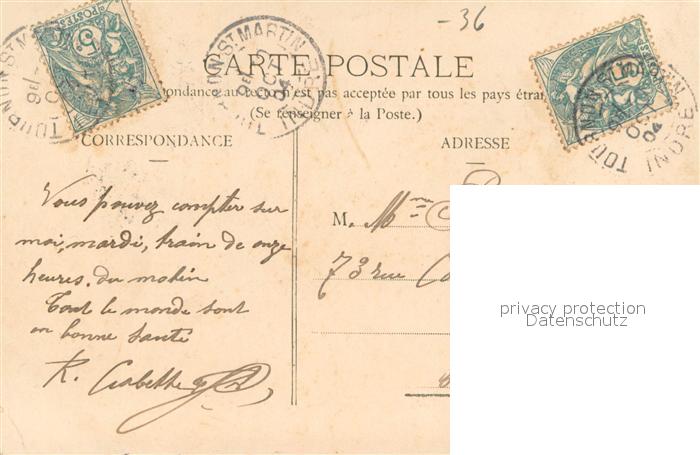 -36
TOURNON ST MARTIN
5
POSTES
TOURNON ST MARTIN
INDRE
04
CARTE POSTALE
pondance au recto n'est pas acceptée par tous les pays étran
(Se renseigner à la Poste.)
TOURNON ST MARTIN
INDRE
04
CORRESPONDANCE
ADRESSE
Vous pouvez compter sur
moi, mardi, train de onze
heures du matin
Tout le monde sont
en bonne santé
M. Mme
73 rue
privacy protection
Datenschutz